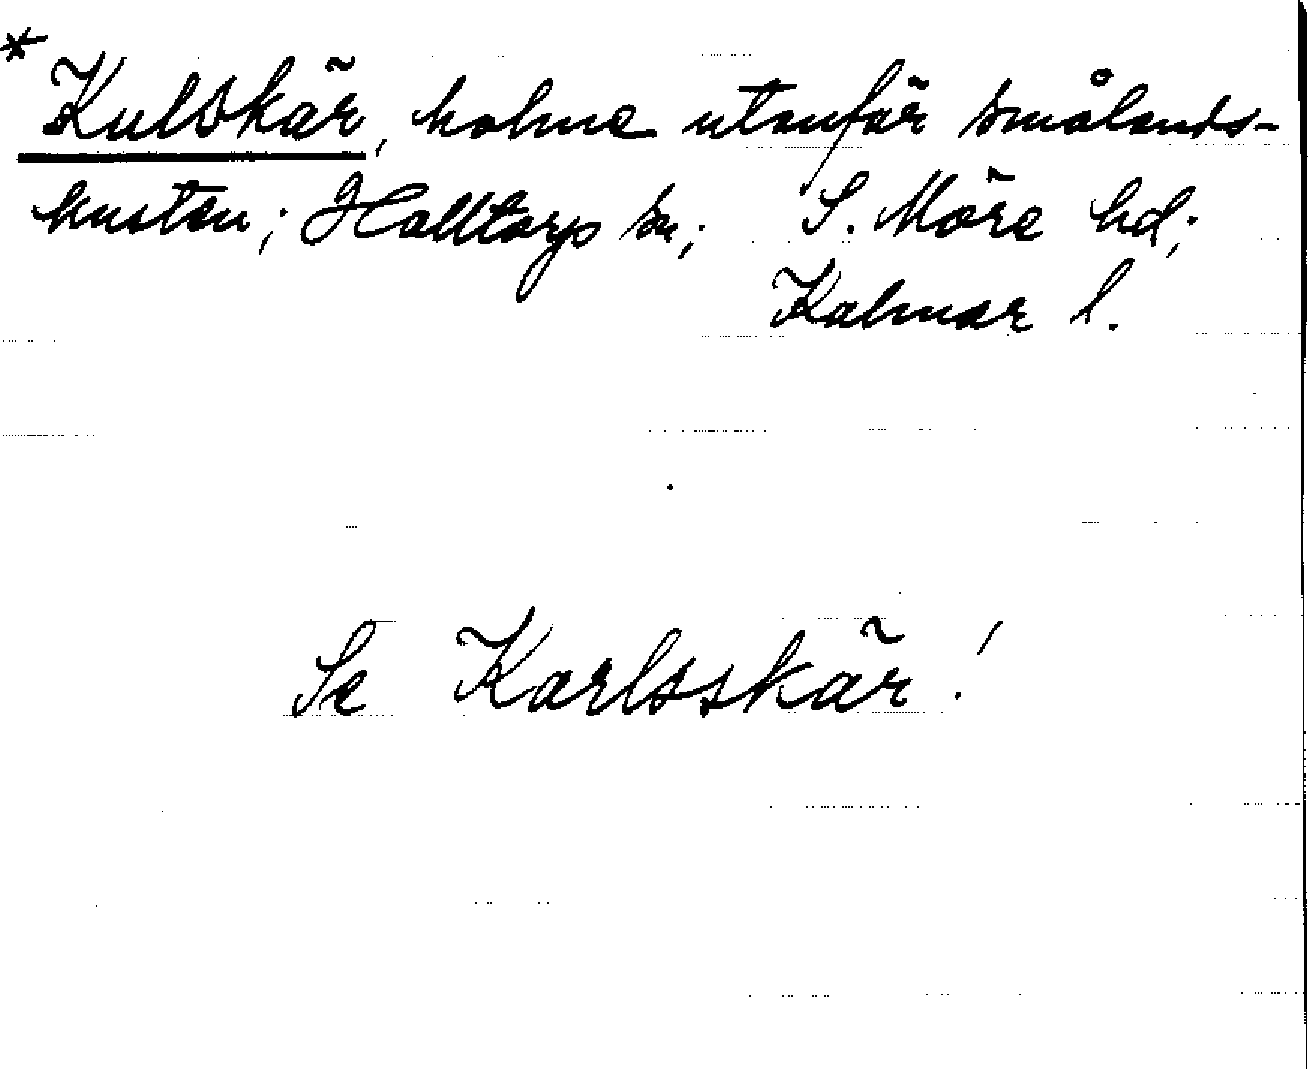 * Kulskär, holme utanför smålands-
kusten; Halltorps sn; S. Möre hd;
Kalmar l.
Se Karlsskär!